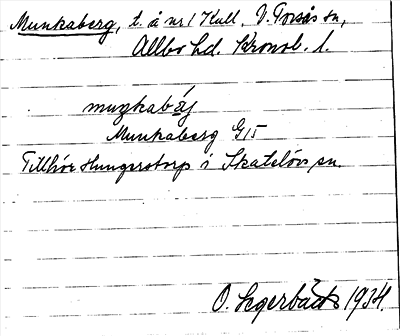 Munkaberg, t. å nr 1 Kull, V. Torsås sn,
Allbo hd. Kronob. l.
muŋkabäj
Munkaberg G15
Tillhör Hungerstorp i Skatelövs sn.
O. Segerbäck 1934.